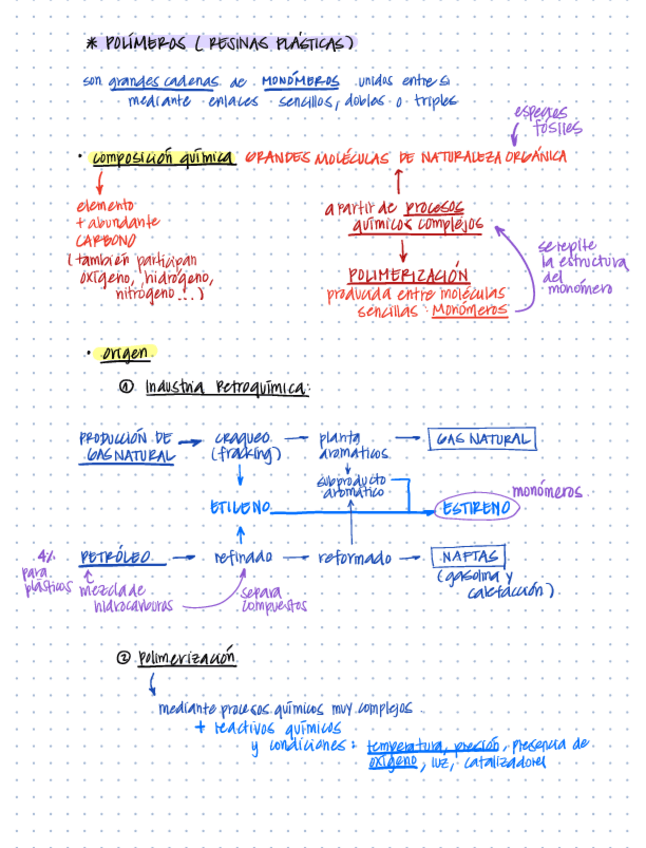 * POLÍMEROS (RESINAS PLÁSTICAS)
son grandes cadenas de MONÓMEROS unidos entre sí
mediante enlaces sencillos, dobles o triples
especies
fósiles
· composición química GRANDES MOLÉCULAS DE NATURALEZA ORGÁNICA
elemento
+ abundante
CARBONO
(también participan
oxígeno, hidrógeno,
nitrógeno...)
a partir de procesos
químicos complejos
POLIMERIZACIÓN
producida entre moléculas
sencillas: Monómeros
se repite
la estructura
del
monómero
· origen
① Industria Petroquímica:
PRODUCCIÓN DE
GAS NATURAL
craqueo
(fracking)
planta
aromáticos
GAS NATURAL
subproducto
aromático
ETILENO
ESTIRENO
monómeros
4%
para
plásticos
PETRÓLEO
refinado
reformado
NAPTAS
(gasolina y
calefacción)
mezcla de
hidrocarburos
separa
compuestos
② Polimerización
mediante procesos químicos muy complejos
+ reactivos químicos
y condiciones: temperatura, presión, presencia de
oxígeno, luz, catalizadores